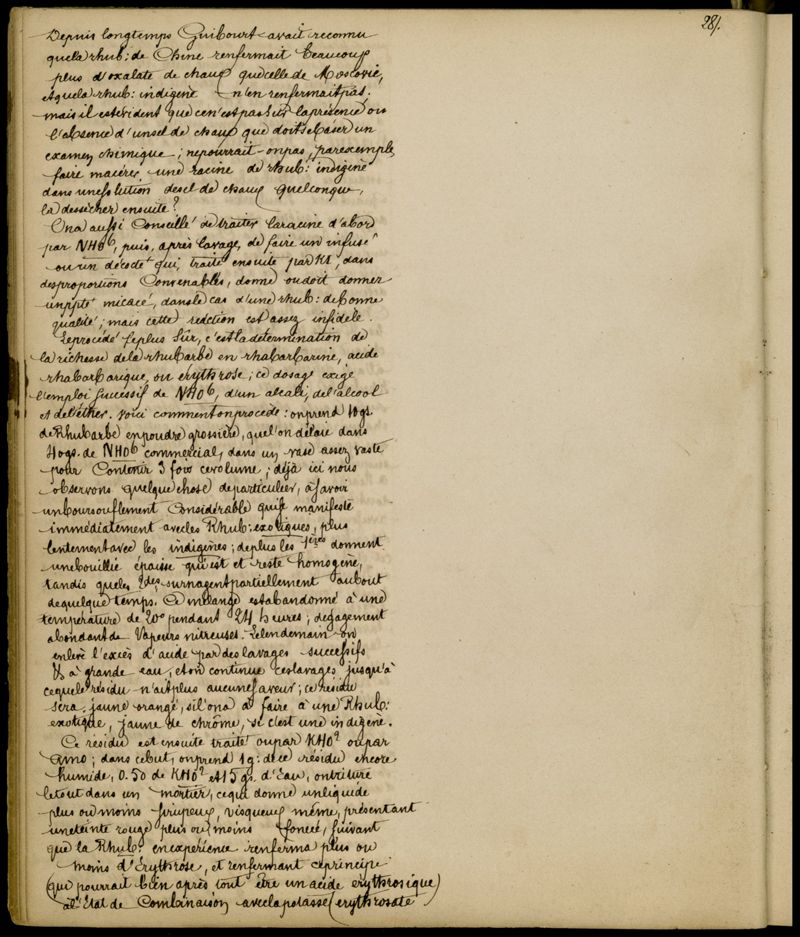 281.
Depuis longtemps Guibourt avait reconnu
que la rhub: de Chine renfermait beaucoup
plus d'oxalate de chaux que celle de Moscovie,
et que la rhub: indigène n'en renfermait pas.
mais il est évident que ce n'est pas sur la présence ou
l'absence d'un sel de chaux que doit se baser un
examen chimique; ne pourrait-on pas, par exemple,
faire macérer une racine de rhub: indigène
dans une solution de sel de chaux quelconque,
la dessécher ensuite?
On a aussi Conseillé de traiter la racine d'abord
par NHO6, puis, après lavage, de faire un infusé
ou un décocté qui, traité ensuite par KI, dans
des proportions Convenables, donne ou doit donner
un ppté micacé, dans le cas d'une rhub: de bonne
qualité; mais cette réaction est assez infidèle.
Le procédé le plus sûr, c'est la détermination de
la richesse de la rhubarbe en rhabarbarine, acide
rhabarbarique, ou erythrose; ce dosage exige
l'emploi successif de NHO6, d'un alcali, de l'alcool
et de l'éther. Voici comment on procède: on prend 10 gs.
de Rhubarbe en poudre grossière, que l'on délaie dans
40 gs. de NHO6 commercial, dans un vase assez vaste
pour Contenir 3 fois ce volume; déjà ici nous
observons quelque chose de particulier, à savoir
un boursouflement Considérable qui se manifeste
immédiatement avec les Rhub: exotiques, plus
lentement avec les indigènes; de plus les 1ères donnent
une bouillie épaisse qui est et reste homogène,
tandis que les 2des surnagent partiellement au bout
de quelque temps. Ce mélange est abandonné à une
température de 20° pendant 24 heures; dégagement
abondant de Vapeurs nitreuses. Le lendemain on
enlève l'excès d'acide par des lavages successifs
& à grande eau, et on continue ces lavages jusqu'à
ce que le résidu n'ait plus aucune saveur; ce résidu
sera jaune orangé, si l'on a à faire à une Rhub:
exotique, jaune de chrôme, si c'est une indigène.
Ce résidu est ensuite traité ou par KHO2 ou par
Amo; dans ce but, on prend 1 g: de ce résidu encore
humide, 0.50 de KHO2 et 15 gs. d'Eau, on triture
le tout dans un mortier, ce qui donne un liquide
plus ou moins sirupeux, visqueux même, présentant
une teinte rouge plus ou moins foncée, suivant
que la Rhub: en expérience renferma plus ou
moins d'Erythrose, et renfermant ce principe
(qui pourrait bien après tout être un acide erythrosique)
à l'Etat de Combinaison avec la potasse (erythrosate